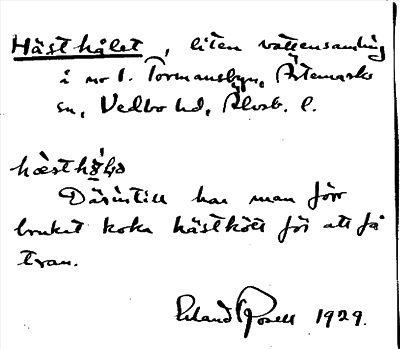 Hästhålet, liten vattensamling
i no 1. Tormansbyn, Ärtemarks
sn, Vedbo hd, Älvsb. l.
Därintill har man förr
brukat koka hästkött för att få
tran.
Erland Rosell 1929.